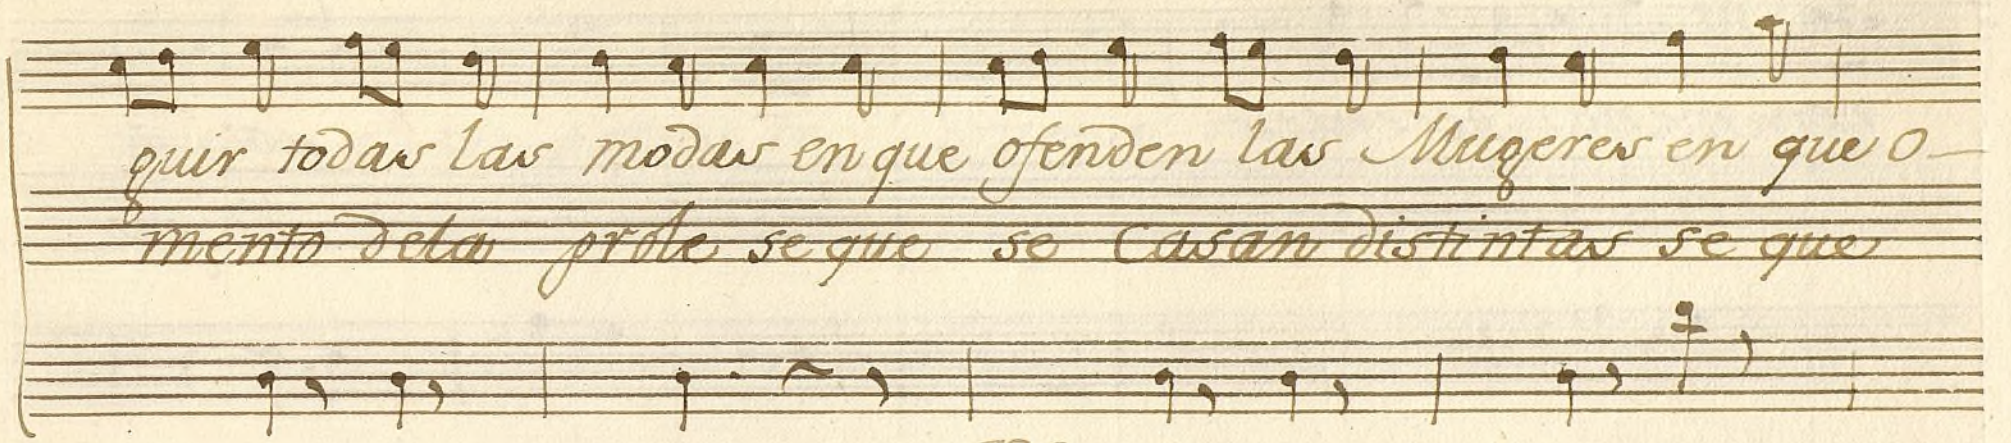 guir todas las modas en que ofenden las Mugeres en que o—
mento dela prole se que se Casan distintas se que